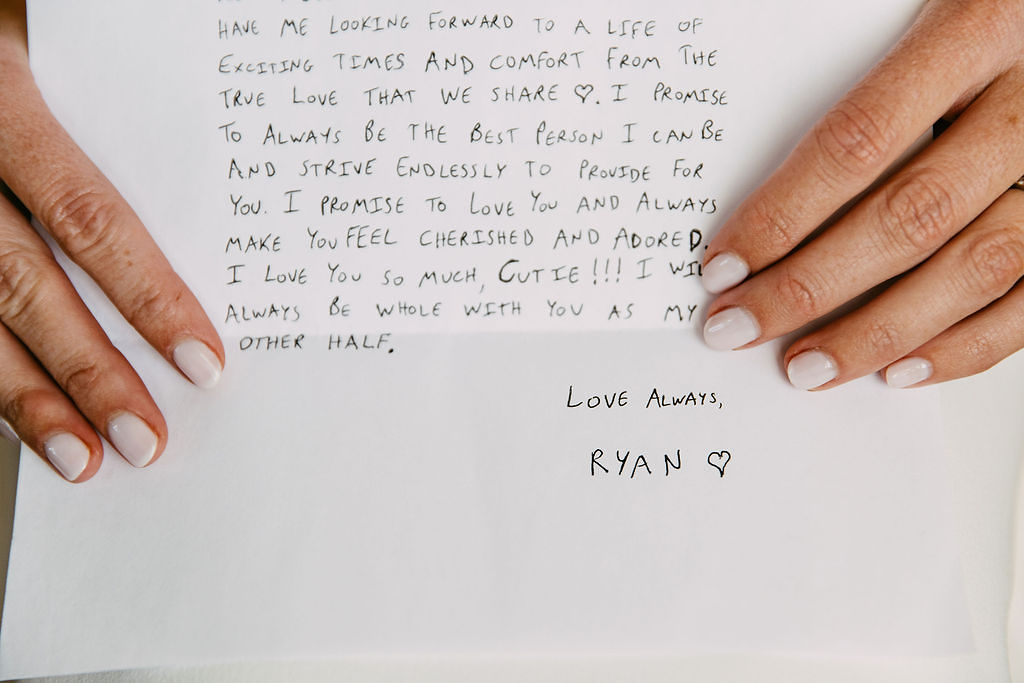 HAVE ME LOOKING FORWARD TO A LIFE OF
EXCITING TIMES AND COMFORT FROM THE
TRUE LOVE THAT WE SHARE ♡. I PROMISE
TO ALWAYS BE THE BEST PERSON I CAN BE
AND STRIVE ENDLESSLY TO PROVIDE FOR
YOU. I PROMISE TO LOVE YOU AND ALWAYS
MAKE YOU FEEL CHERISHED AND ADORED.
I LOVE YOU SO MUCH, CUTIE!!! I WIL
ALWAYS BE WHOLE WITH YOU AS MY
OTHER HALF.
LOVE ALWAYS,
RYAN ♡